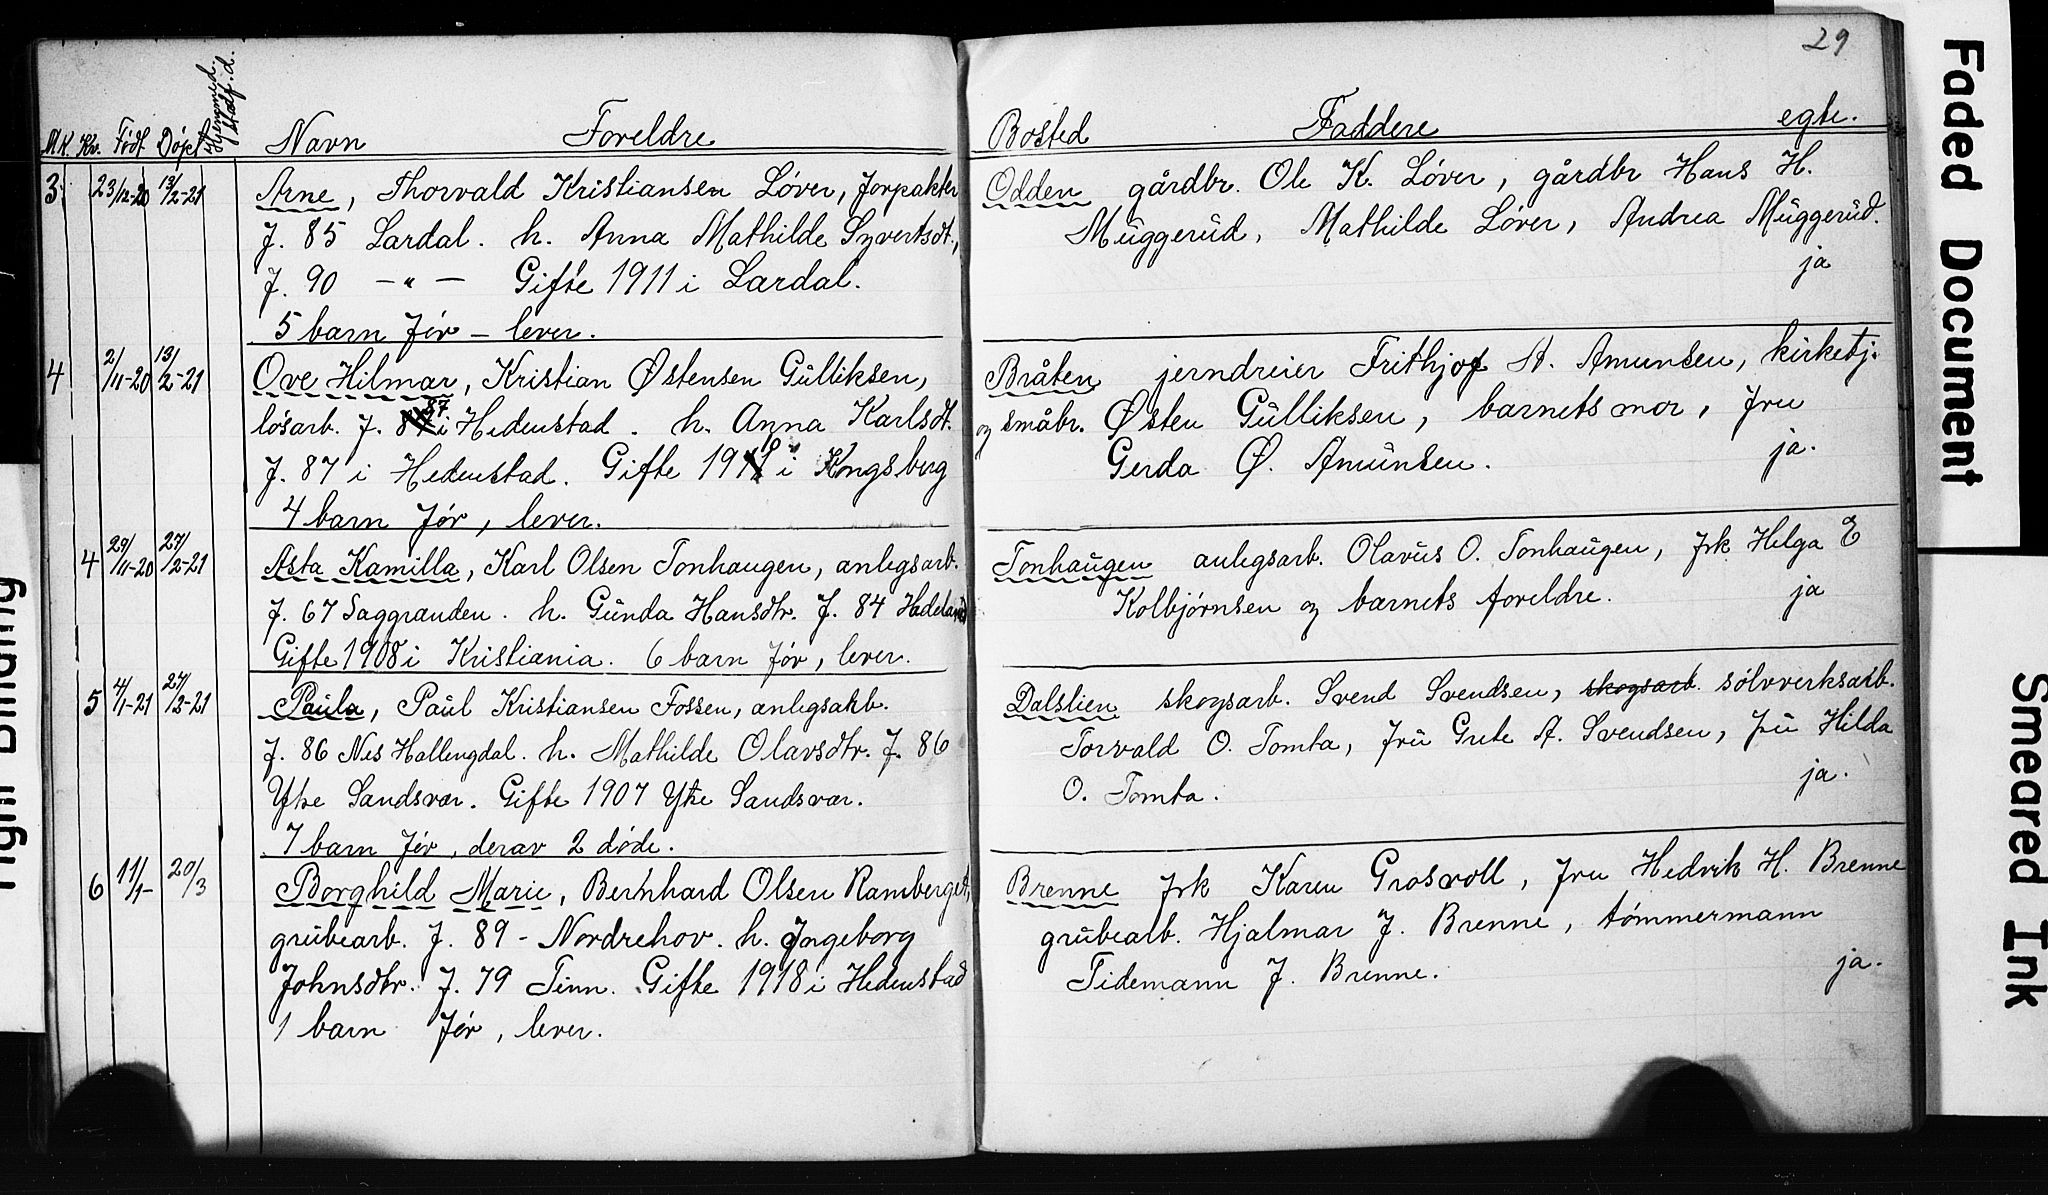 29
Mk. Kv. Født Døpt Hjemmed. stadf. d. Navn Foreldre
3 23/12-20 13/2-21 Arne, Thorvald Kristiansen Løver, forpakter
f. 85 Lardal. h. Anna Mathilde Syvertsdt.,
f. 90 -"- Gifte 1911 i Lardal.
5 barn før - lever.
4 2/11-20 13/2-21 Ove Hilmar, Kristian Østensen Gulliksen,
løsarb. f. 87 i Hedenstad. h. Anna Karlsdt.
f. 87 i Hedenstad. Gifte 1910 i Kongsberg
4 barn før, lever.
4 29/11-20 27/2-21 Asta Kamilla, Karl Olsen Tonhaugen, anlegsarb.
f. 67 Saggranden. h. Gunda Hansdtr. f. 84 Hadeland
Gifte 1908 i Kristiania. 6 barn før, lever.
5 4/1-21 27/2-21 Paula, Paul Kristiansen Fossen, anlegsarb.
f. 86 Nes Hallingdal. h. Mathilde Olavsdtr. f. 86
Ytre Sandsvær. Gifte 1907 Ytre Sandsvær.
7 barn før, derav 2 døde.
6 11/1- 20/3 Borghild Marie, Bernhard Olsen Ramberget,
grubearb. f. 89 - Nordrehov. h. Ingeborg
Johnsdtr. f. 79 Tinn. Gifte 1918 i Hedenstad
1 barn før, lever.
Bosted Faddere egte.
Odden gårdbr. Ole K. Løver, gårdbr Hans H.
Muggerud, Mathilde Løver, Andrea Muggerud.
ja
Bråten jerndreier Frithjof St. Amunsen, kirketj.
og småbr. Østen Gulliksen, barnets mor, fru
Gerda Ø. Amunsen. ja.
Tonhaugen anlegsarb. Olavus O. Tonhaugen, frk Helga E
Kolbjørnsen og barnets foreldre. ja
Dalslien skogsarb. Svend Svendsen, skogsarb. sølvverksarb.
Torvald O. Tomta, fru Grete A. Svendsen, fru Hilda
O. Tomta. ja.
Brenne frk Karen Grosvoll, fru Hedvik H. Brenne
grubearb. Hjalmar J. Brenne, tømmermann
Tidemann J. Brenne. ja.
Faded Document
Smeared Ink
Tight Binding